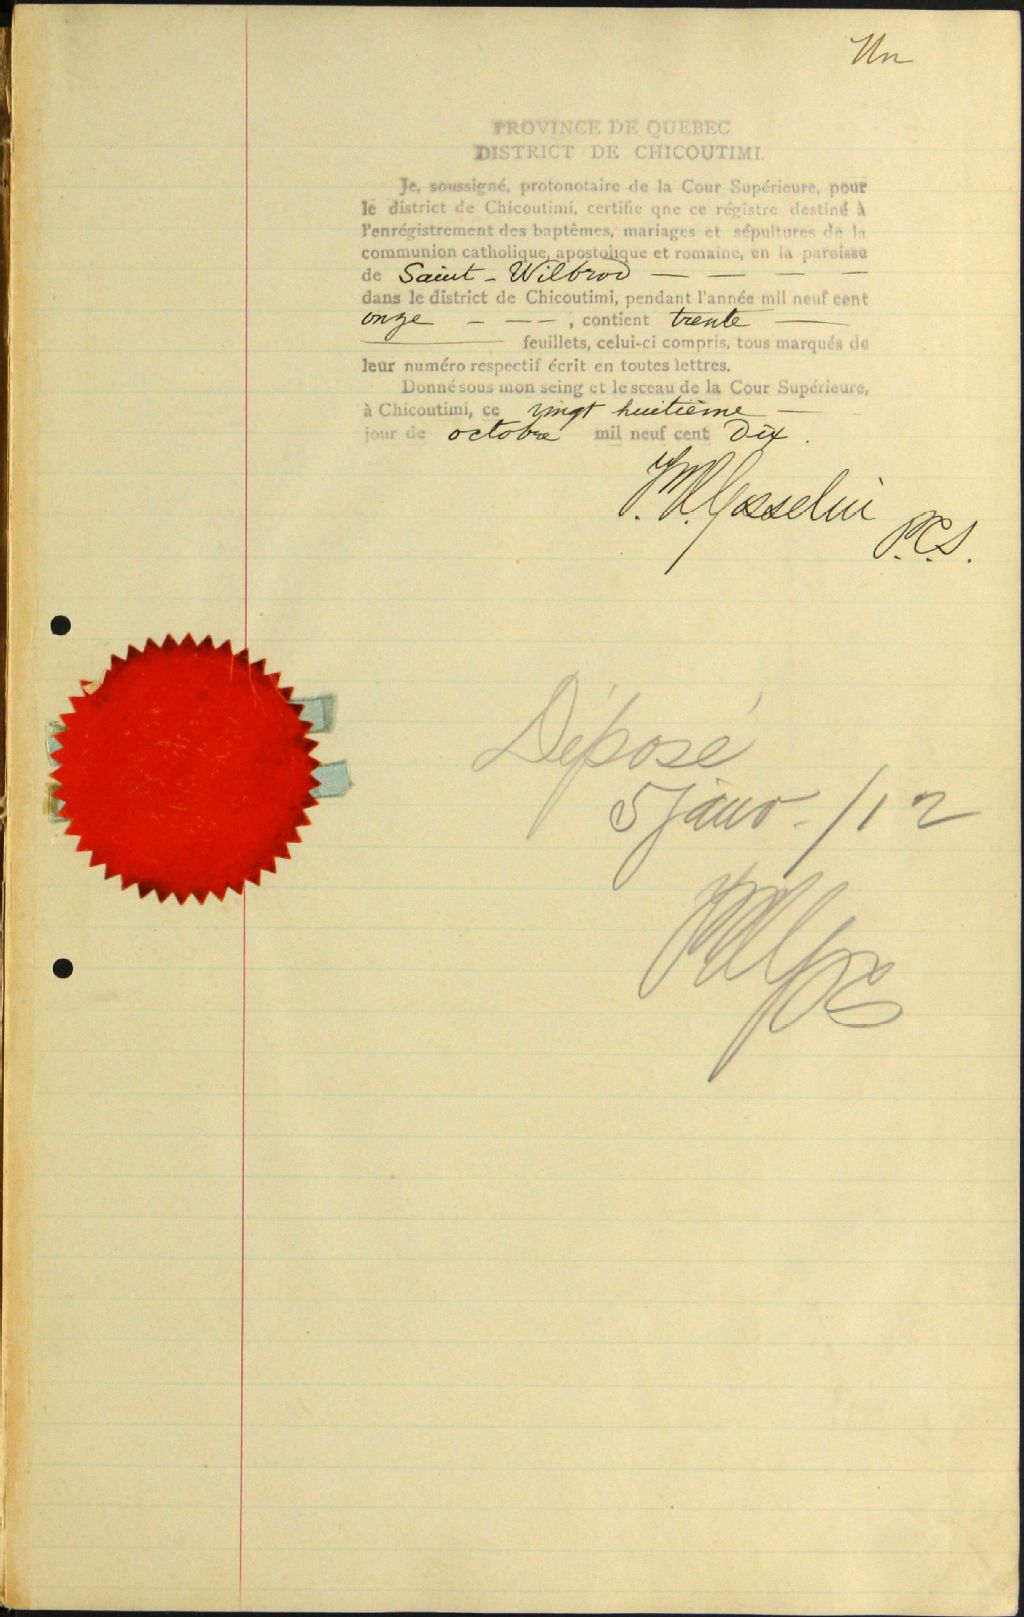 Un
PROVINCE DE QUEBEC
DISTRICT DE CHICOUTIMI.
Je, soussigné, protonotaire de la Cour Supérieure, pour
le district de Chicoutimi, certifie qne ce régistre destiné à
l'enrégistrement des baptêmes, mariages et sépultures de la
communion catholique, apostolique et romaine, en la paroisse
de Saint-Wilbrod — — — —
dans le district de Chicoutimi, pendant l'année mil neuf cent
onze - - - - , contient trente —
— feuillets, celui-ci compris, tous marqués de
leur numéro respectif écrit en toutes lettres.
Donné sous mon seing et le sceau de la Cour Supérieure,
à Chicoutimi, ce vingt huitième —
jour de octobre mil neuf cent Dix.
Gosselin
P.C.S.
Déposé
5 janv. /12